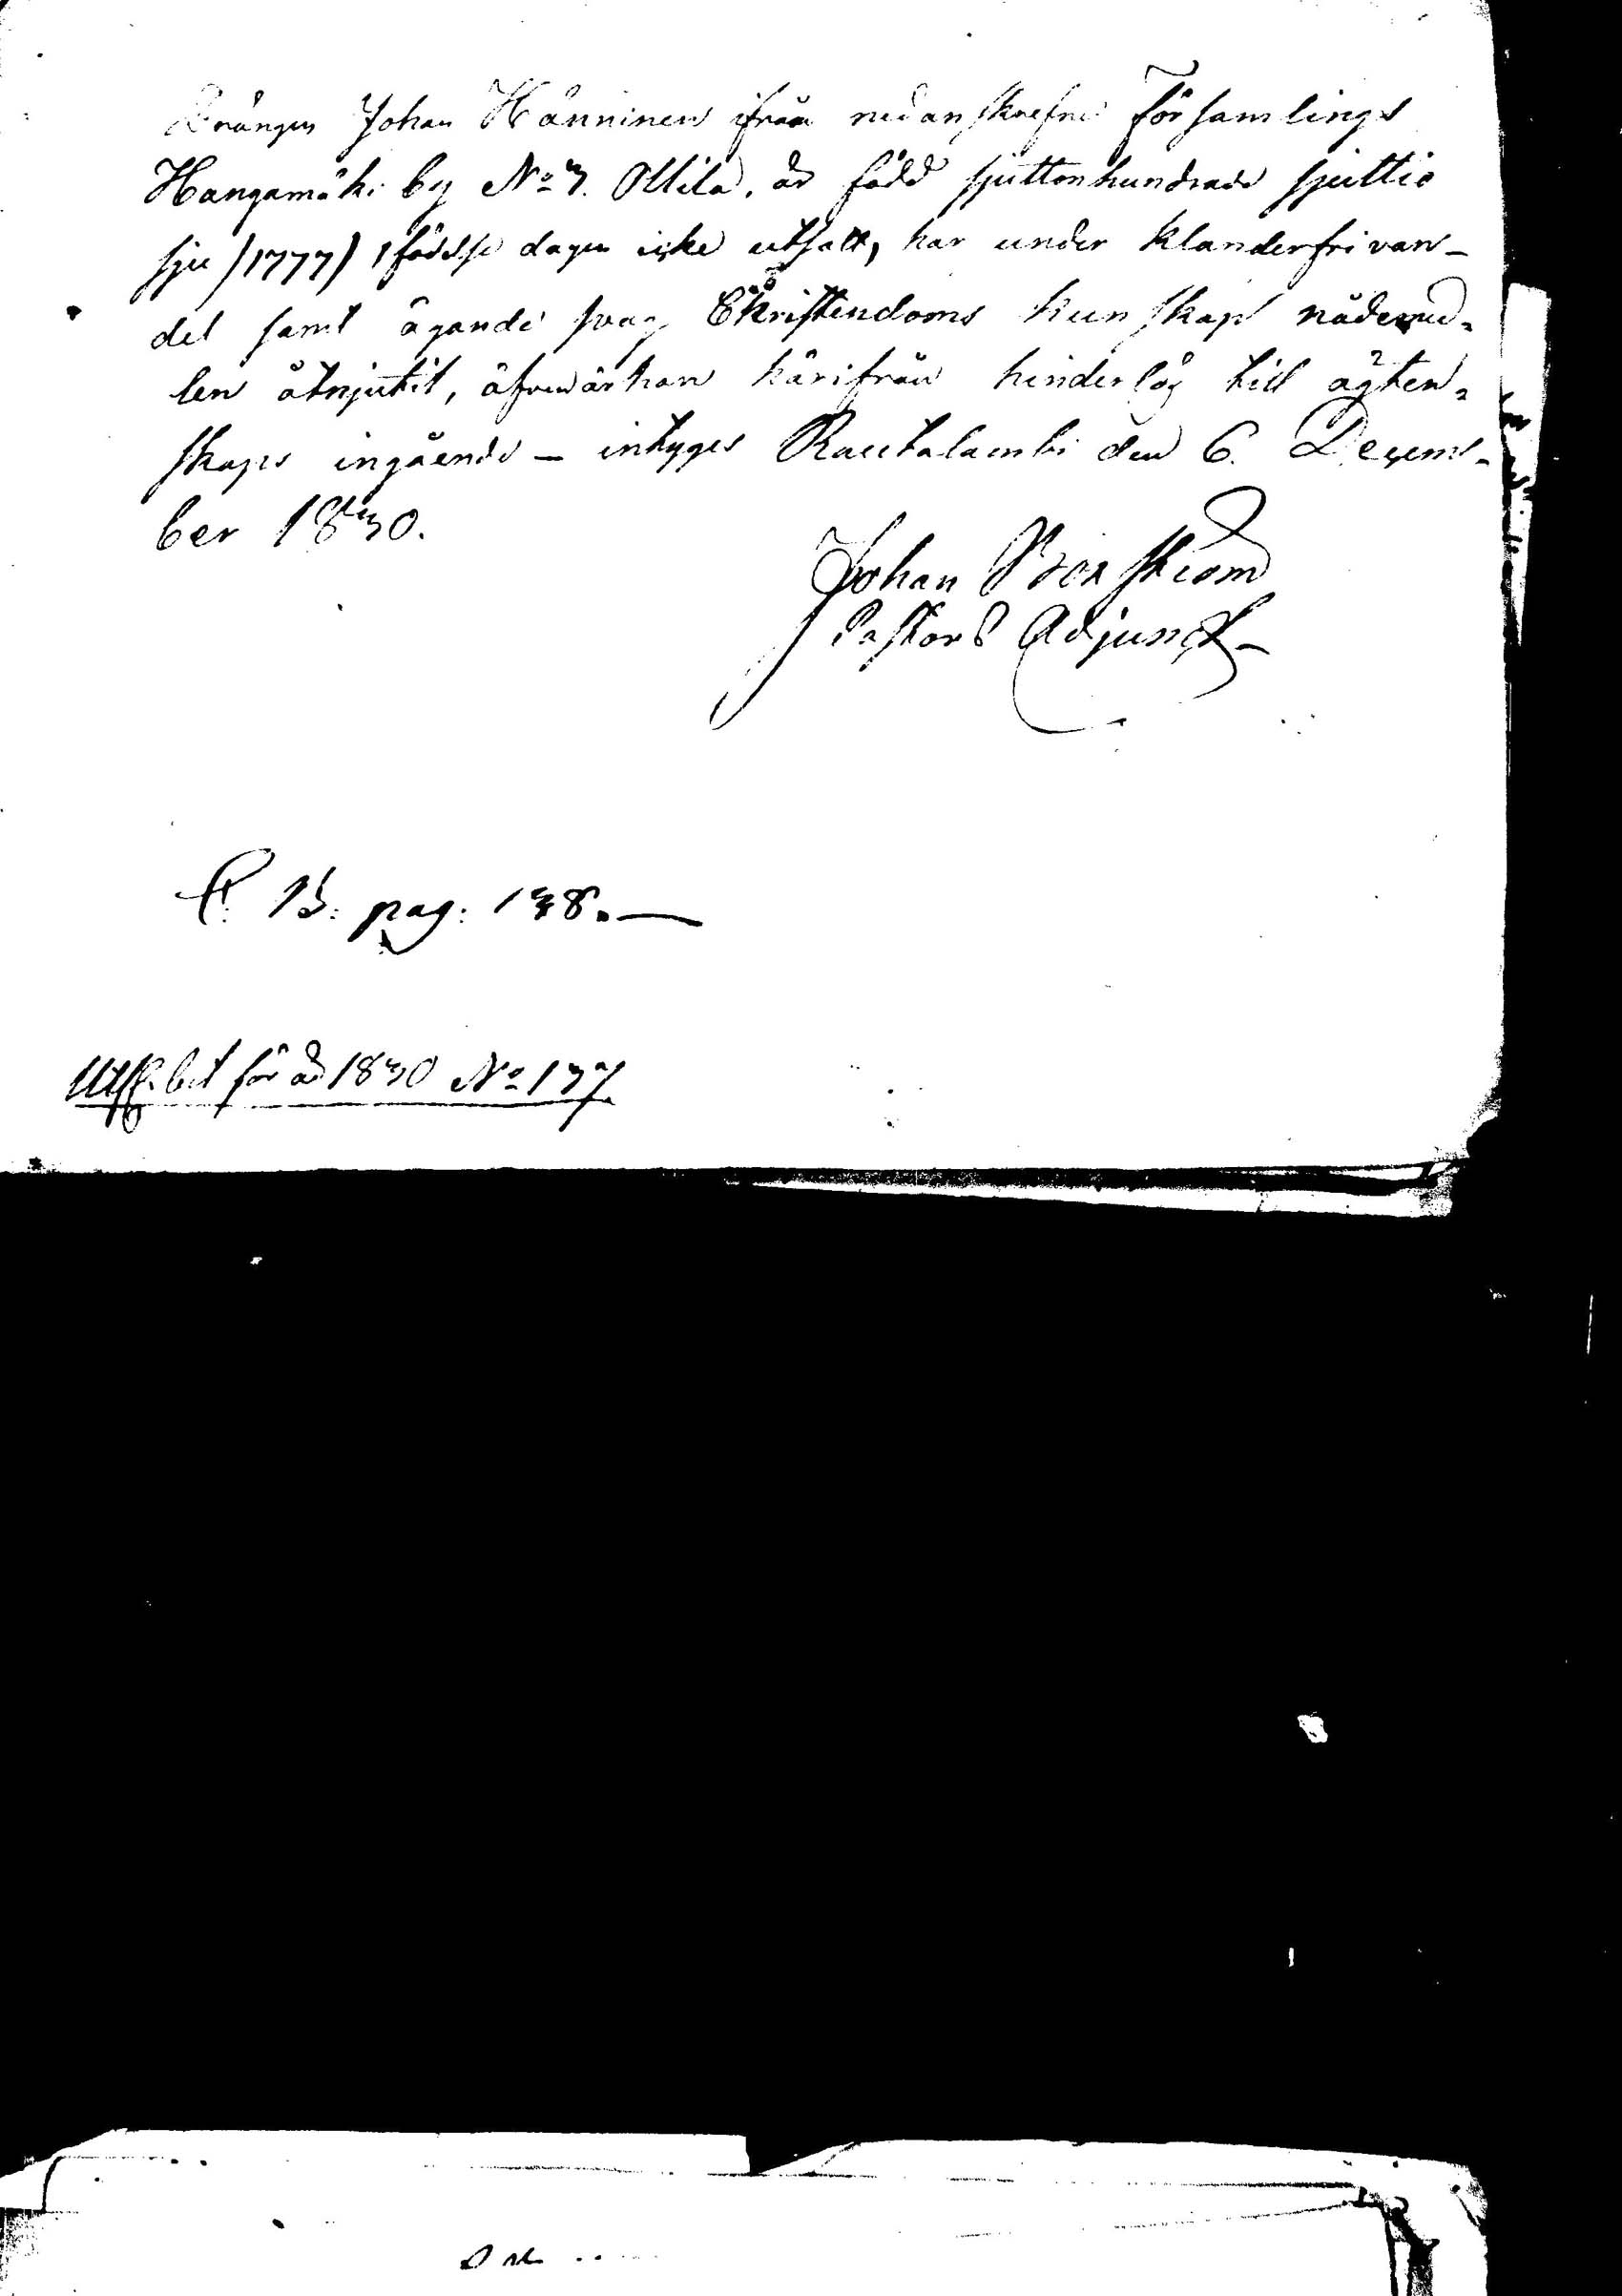 Drängen Johan Hänninen ifrån nedanskrefne Församlings
Hangamäki by No 3. Ollila, är född sjuttonhundrade sjuttio
sju /1777/ födelse dagen icke utsatt, har under klanderfri van-
del samt ägande svag Christendoms kunskap nådemed-
len åtnjutit, äfven är han härifrån hinderlös till ägten-
skaps ingående – intygas Rautalambi den 6. Decem-
ber 1830.
Johan
Pastors Adjunct
pag: 138.
bet för år 1830 No 137